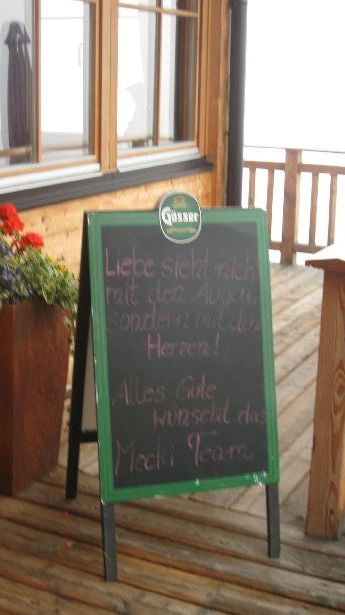 Gösser
Liebe sieht nich
mit den Augen,
sondern mit dem
Herzen!
Alles Gute
wünscht das
Mocki Team